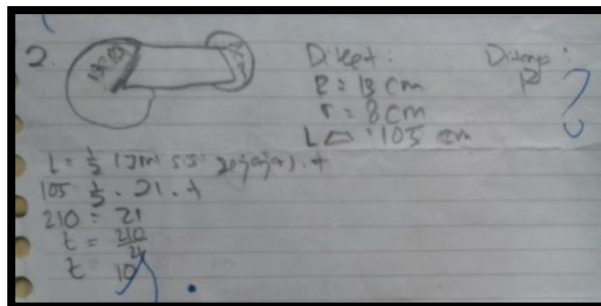 2.
13 cm
8 cm
Diket :
R = 13 cm
r = 8 cm
L = 105 cm
Ditanya :
P
?
L = ½ (Jml sisi sejajar) . t
105 ½ . 21 . t
210 = 21
t = 210/21
t 10